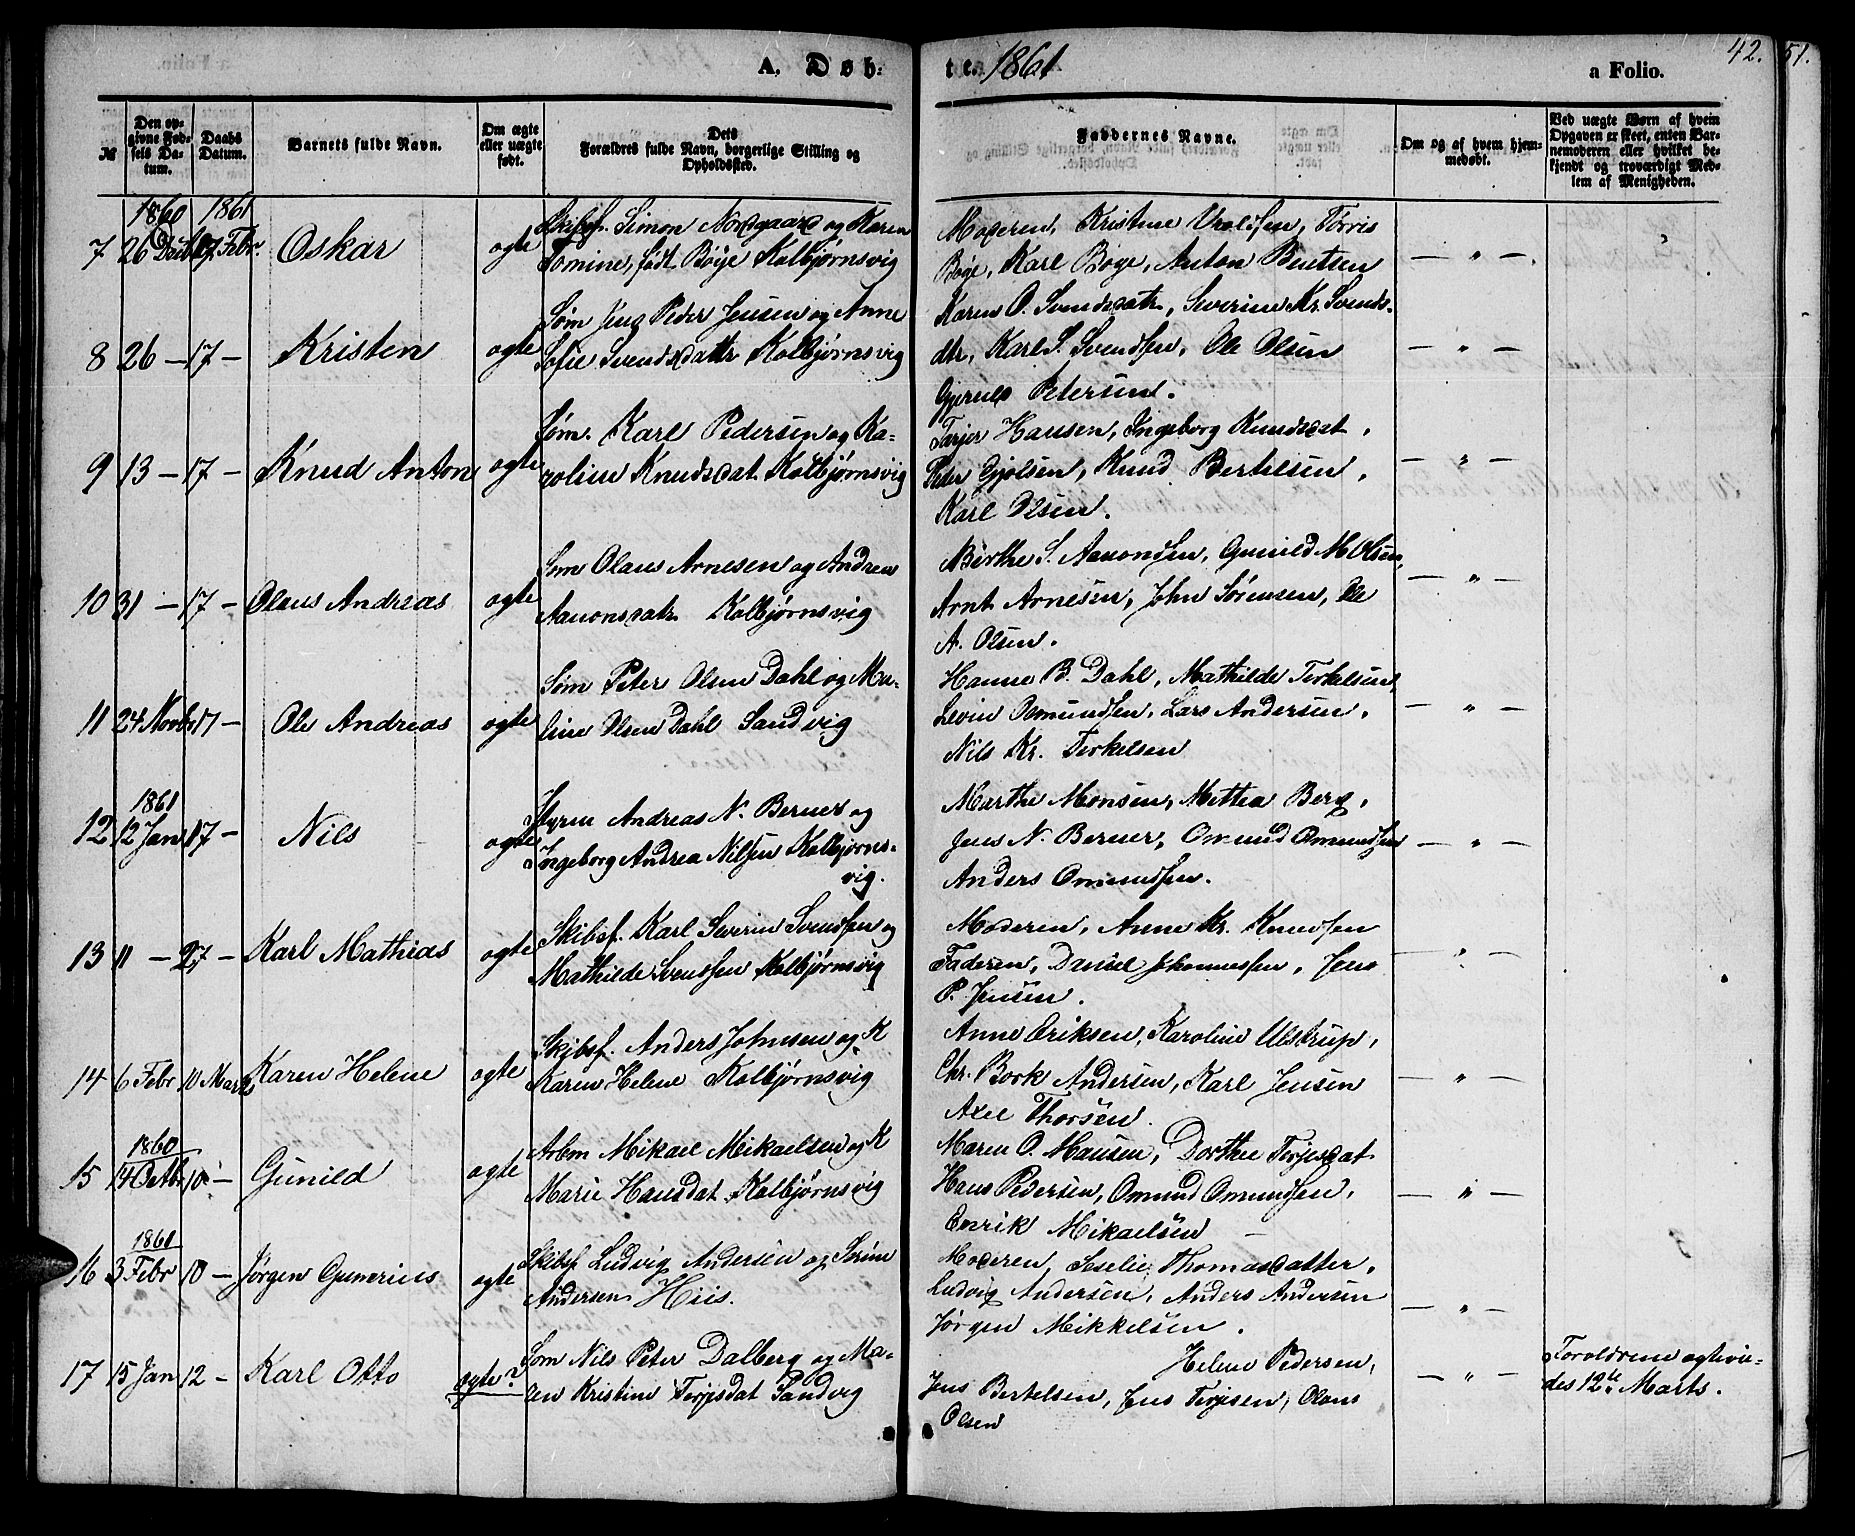 A. Døb-
te. 1861
a Folio.
42.
51.
№
Den op-
givne Fød-
sels Da-
tum.
Daabs
Datum.
Barnets fulde Navn.
Om ægte
eller uægte
født.
Dets
Forældres fulde Navn, borgerlige Stilling og
Opholdssted.
Faddernes Navne.
Om og af hvem hjem-
medøbt.
Ved uægte Børn af hvem
Opgaven er skeet, enten Bar-
nemoderen eller hvilket be-
kjendt og troværdigt Med-
lem af Menigheden.
1860 1861
7 26 Decb 17 Febr. Oskar ogte
Skibsf. Simon Nordgaard og Karen
Tomine, født Bøje Kolbjørnsvig
Moderen, Kristine Vrolsen, Torris
Bøje, Karl Boye, Anton Bentsen
— " —
8 26 — 17 — Kristen ogte
Søm Jens Peder Jensen og Anne
Sofie Svendsdattr Kolbjørnsvig
Karen O. Svendsdatr, Severine Kr. Svends-
dtr, Karl S. Svendsen, Ole Olsen
Petersen.
— " —
9 13 — 17 — Knud Anton ogte
Søm. Karl Pedersen og Ka-
roline Knudsdat Kolbjørnsvig
Tarjer Hansen, Ingeborg Knudsdat,
Peder Gjølsen, Knud Bertelsen,
Karl Olsen.
— " —
10 31 — 17 — Olaus Andreas ogte
Søm Olaus Arnesen og Andrea
Aanonsdatr Kolbjørnsvig
Birthe S. Aanonsen, Gunild M Olsen,
Arnt Arnesen, John Sørensen, Ole
A. Olsen.
— " —
11 24 Novb 17 — Ole Andreas ogte
Søm Peter Olsen Dahl og Ma-
line Olsen Dahl Sandvig
Hanne B. Dahl, Mathilde Terkelsen,
Levin Osmundsen, Lars Andersen,
Nils Kr. Terkelsen
— " —
1861
12 12 Jan 17 — Nils ogte
Styrm Andreas N. Berner og
Ingeborg Andrea Nilsen Kolbjørns-
vig.
Marthe Monsen, Mettea Berg,
Jens N. Berner, Omund Omundsen
Anders Omundsen.
— " —
13 11 — 27 — Karl Mathias ogte
Skibsf. Karl Severin Svendsen og
Mathilde Svendsen Kolbjørnsvig
Moderen, Anne Kr. Knudsen
Faderen, Daniel Johannessen, Jens
P. Jensen.
— " —
14 6 Febr 10 Marts Karen Helene ogte
Skibsf. Anders Johnsen og K
Karen Helene Kolbjørnsvig
Anne Eriksen, Karoline Ulstrup,
Chr. Bork Andersen, Karl Jensen
Axel Thorsen.
— " —
1860
15 14 Octbr 10 — Gunild ogte
Arbm Mikael Mikaelsen og K
Marie Hansdat Kolbjørnsvig
Maren O. Hansen, Dorthe Terjesdat
Hans Pedersen, Omund Omundsen,
Enrik Mikaelsen —
— " —
1861
16 3 Febr 10 — Jørgen Gunerius ogte
Skibsf Ludvig Andersen og Serine
Andersen Hiis.
Moderen, Seselie Thomasdatter,
Ludvig Andersen, Anders Andersen
Jørgen Mikkelsen.
— " —
17 15 Jan 12 — Karl Otto ogte?
Søm Nils Peter Dalberg og Ma-
ren Kristine Terjesdat Sandvig
Helene Pedersen,
Jens Bertelsen, Jens Terjesen, Olaus
Olsen
— " —
Foroldrene ogtevie-
des 12te Marts.